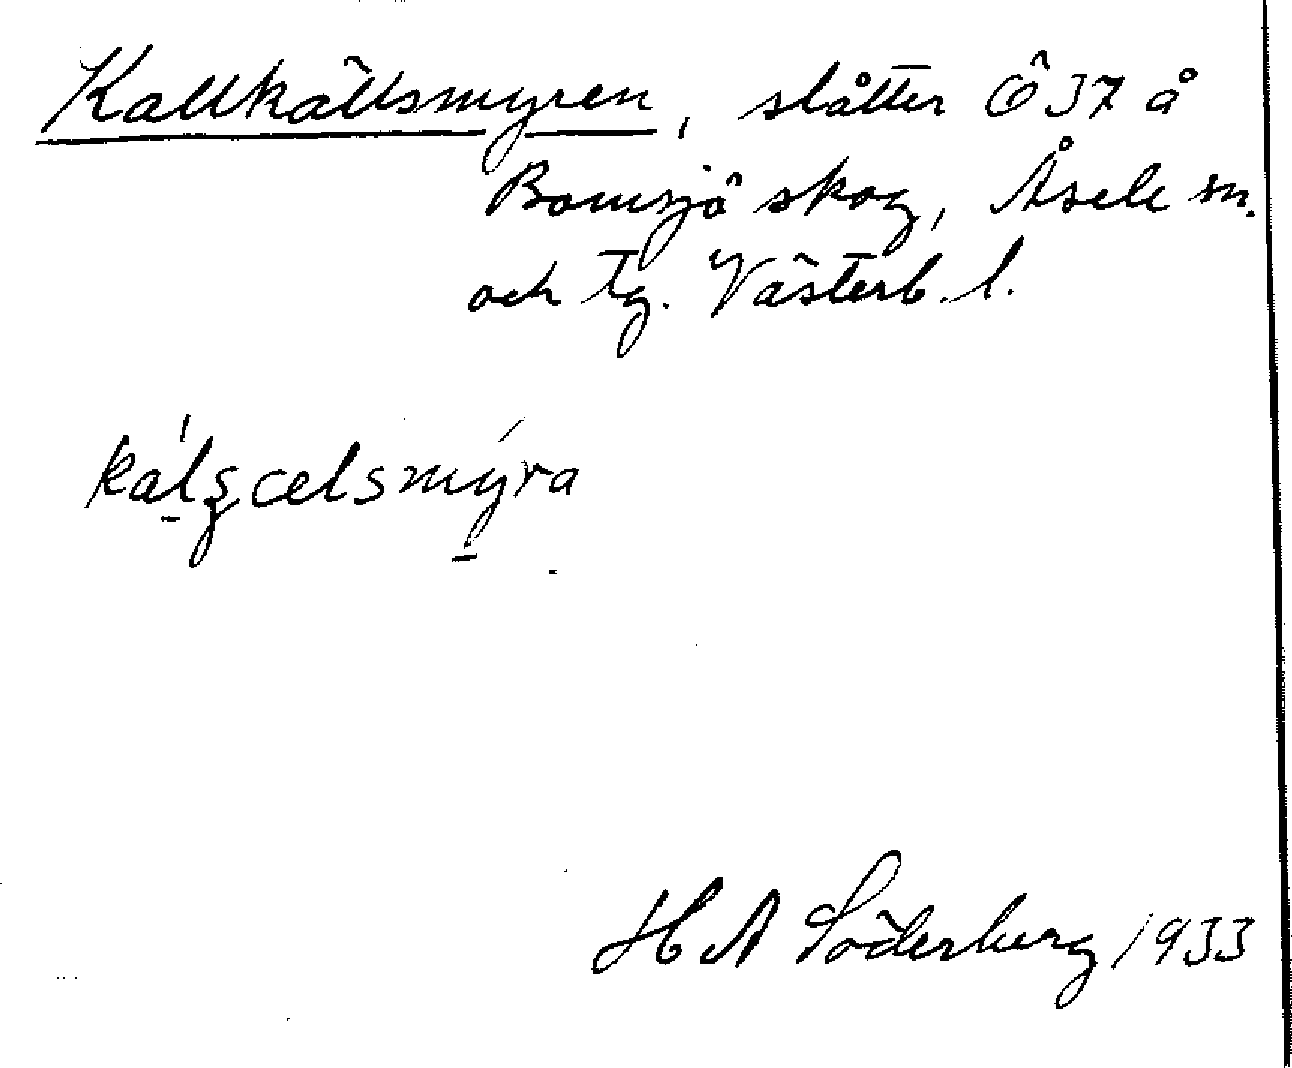 Kallkällsmyren, slåtter Ö 37 å
Bomsjö skog, Åsele sn.
och tg. Västerb. l.
H A Söderberg 1933